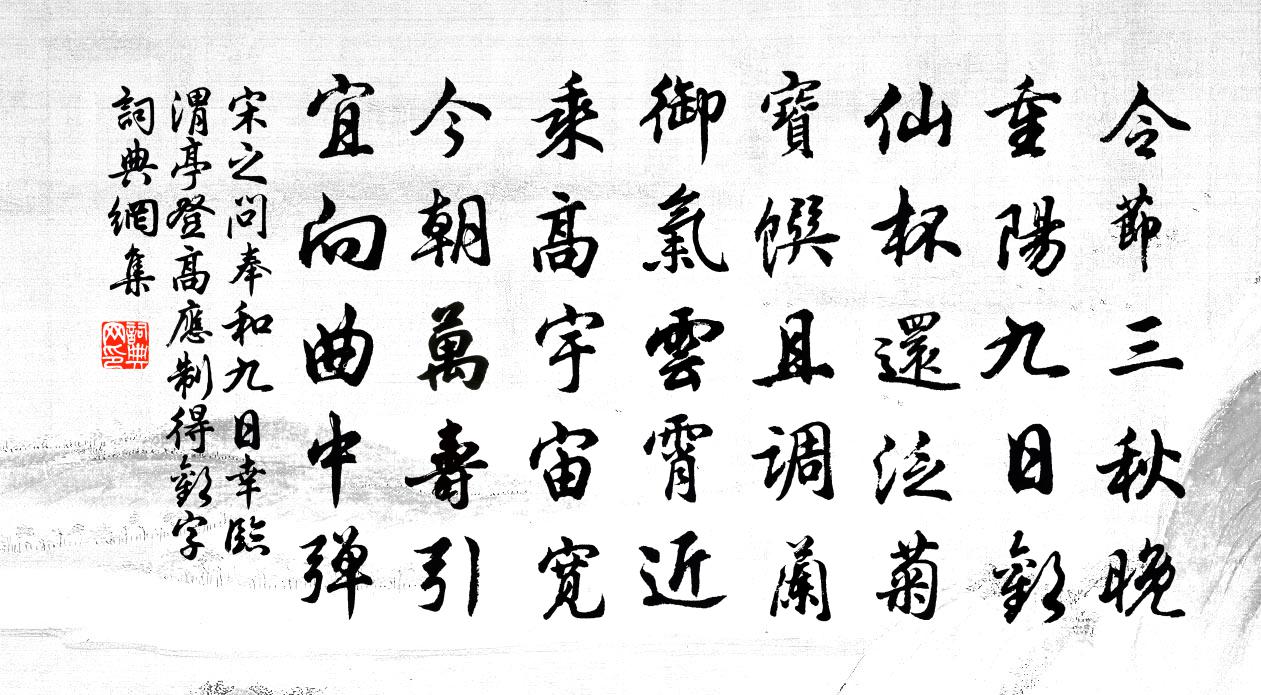 令節三秋晚
重陽九日歡
仙杯還泛菊
寶饌且調蘭
御氣雲霄近
乘高宇宙寬
今朝萬壽引
宜向曲中彈
宋之問奉和九日幸臨
渭亭登高應制得歡字
詞典網集
詞典网印